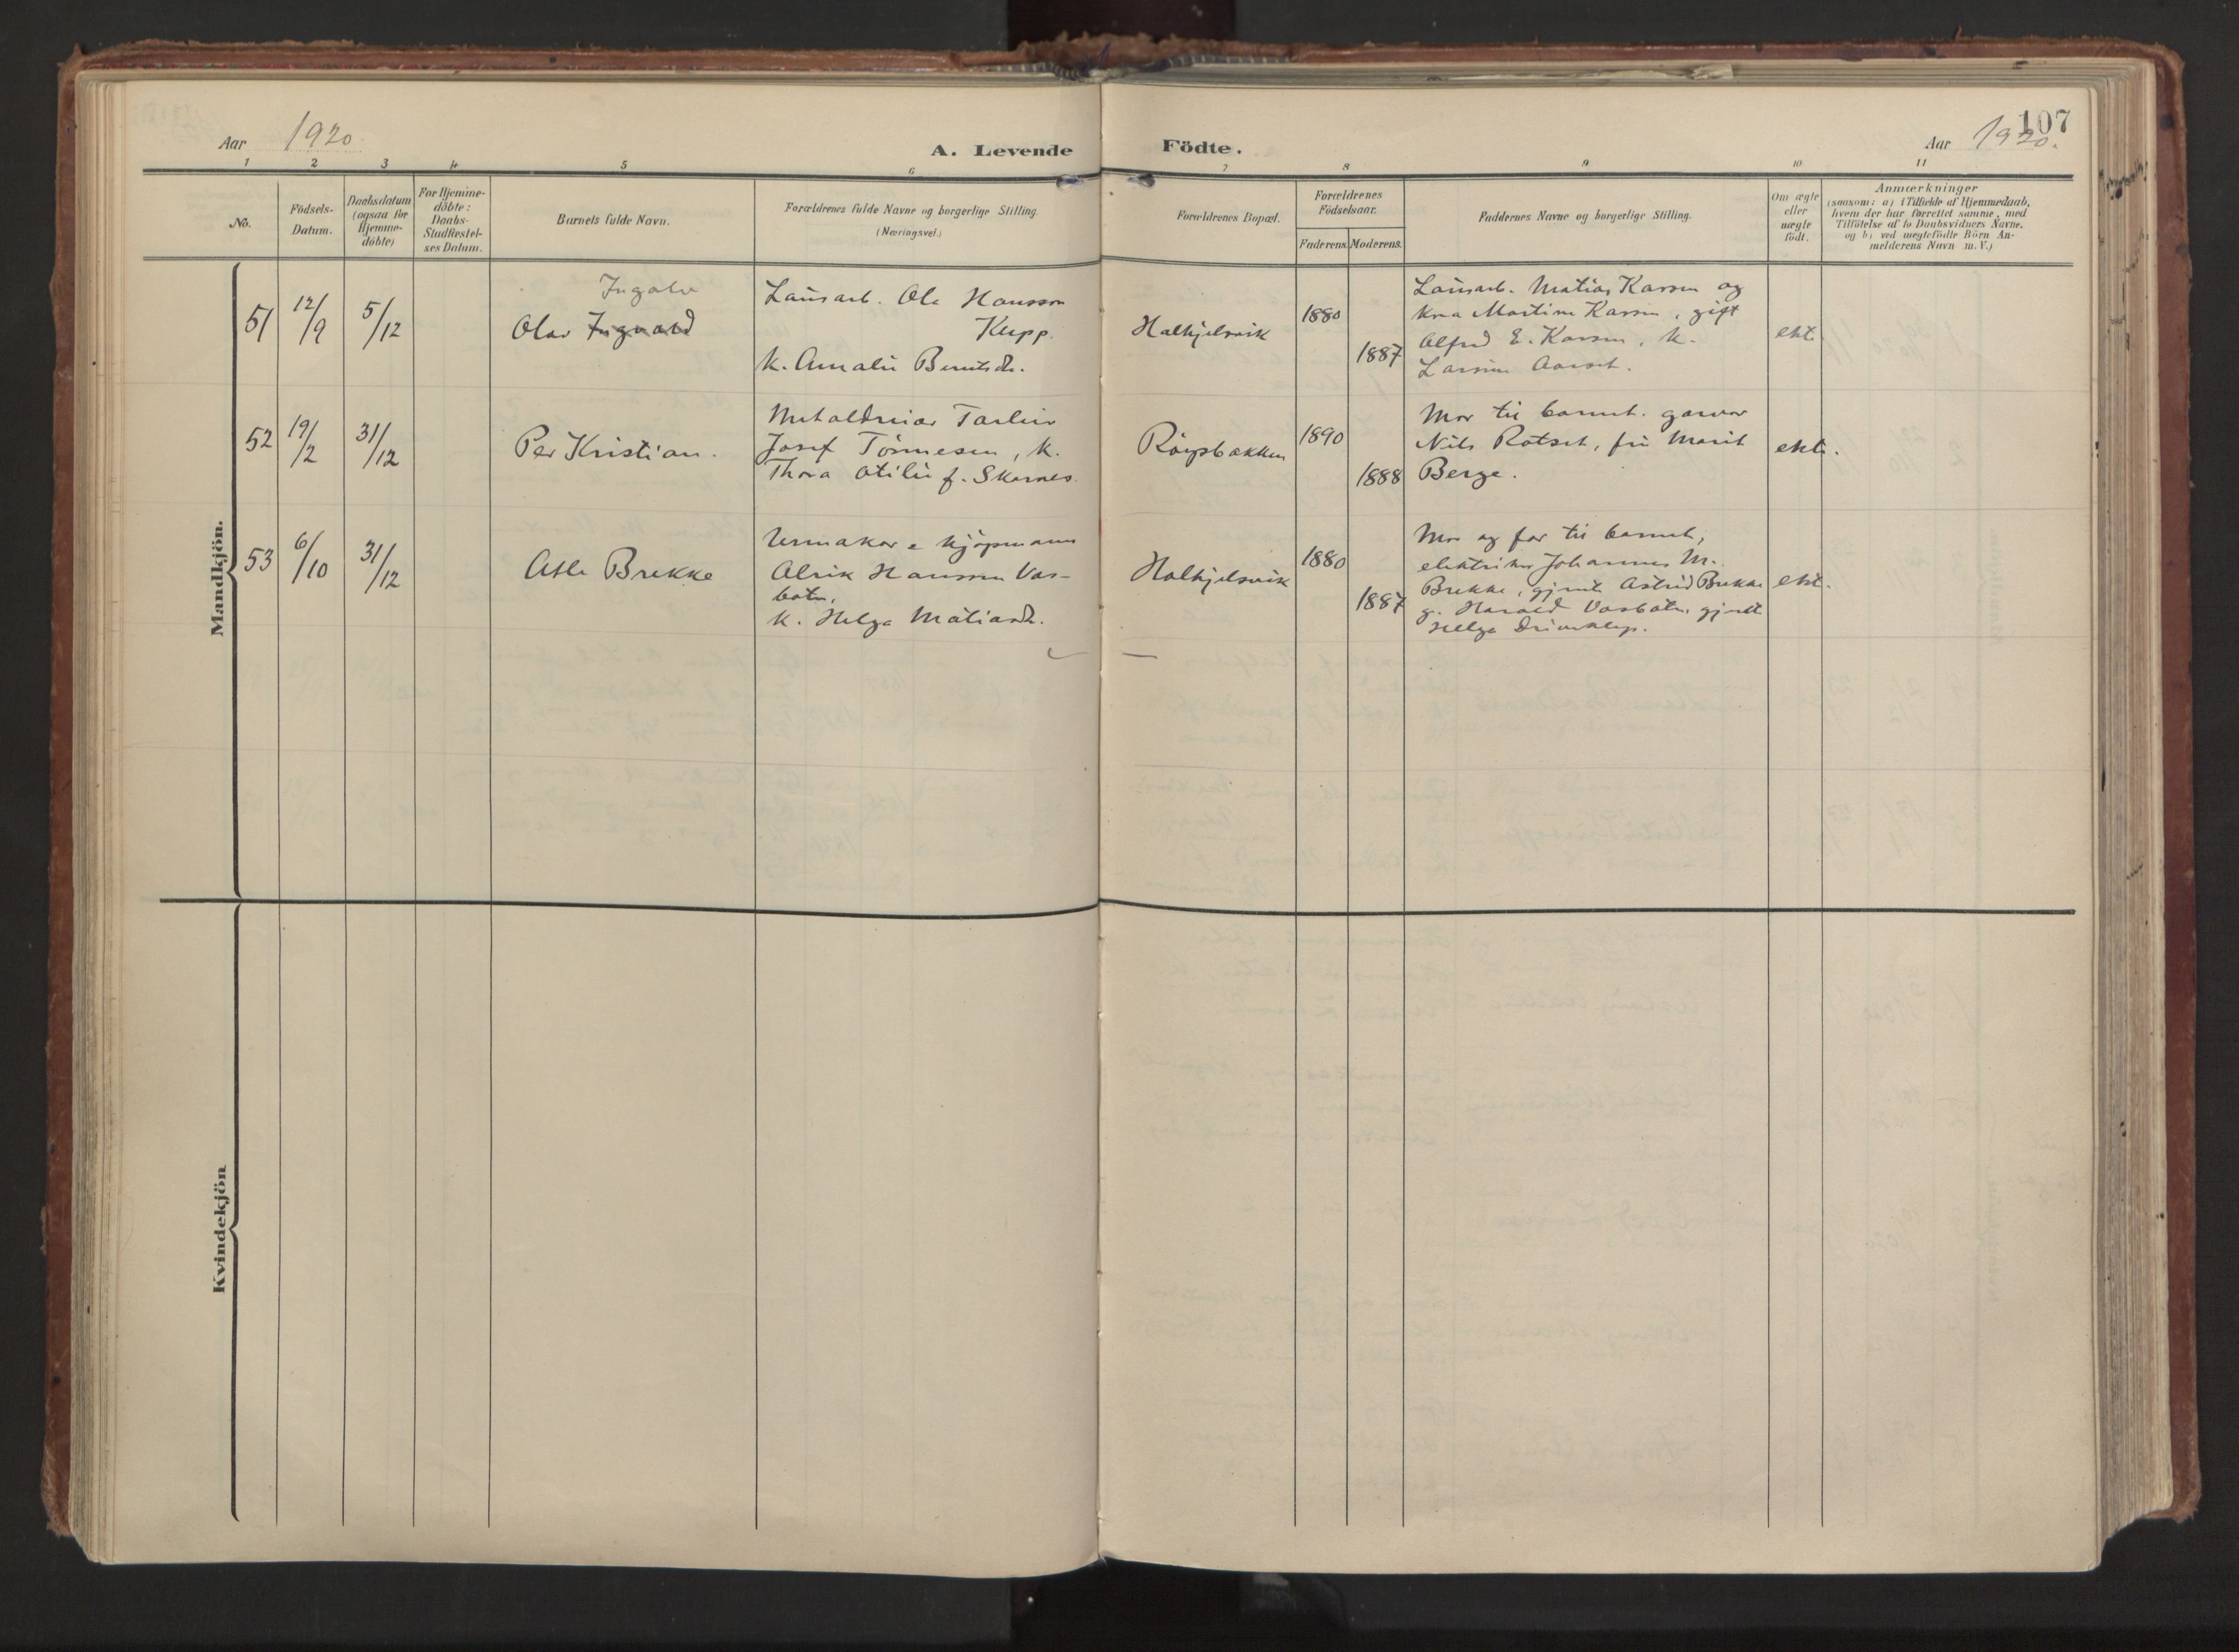 Aar 1920.
A. Levende
Födte.
107
Aar 1920.
1 2 3 4 5 6 7 8 9 10 11
No.
Födsels-
Datum.
Daabsdatum
(ogsaa for
Hjemme-
döbte)
For Hjemme-
döbte:
Daabs-
Stadfestel-
ses Datum.
Barnets fulde Navn.
Forældrenes fulde Navne og borgerlige Stilling.
(Næringsvei.)
Forældrenes Bopæl.
Forældrenes
Födselsaar.
Faderens. Moderens.
Faddernes Navne og borgerlige Stilling.
Om ægte
eller
uægte
födt.
Anmærkninger
(saasom: a) i Tilfælde af Hjemmedaab,
hvem der har forrettet samme, med
Tilföielse af to Daabsvidners Navne,
og b) ved uægtefödte Börn An-
melderens Navn m. V.)
Mandkjön.
51
12/9
5/12
Ingolv
Olav Ingvald
Lausarb. Ole Hansson
Kupp.
K. Amalie Berntsdr.
Halkjelsvik
1880
1887
Lausarb. Matias Karsen og
kna Martine Karsen, gift
Alfred E. Karsen, k.
Larsine Aarset.
ekte
52
19/2
31/12
Per Kristian.
Metaldreiar Tarleiv
Josef Tönnesen, k.
Thora Otilie f. Skarnes.
Röysbakken
1890
1888
Mor til barnet. garvar
Nils Rotset, frü Marit
Berge.
ekte.
53
6/10
31/12
Atle Brekke
Urmakar e kjöpmann
Alrik Hansson Vas-
botn,
k. Helga Matiasdr.
Halkjelsvik
1880
1887
Mor og far til barnet,
elektriker Johannes M.
Brekke, gjente Astrid Brekke
g. Harald Vasbotn, gjente
Helga
ekte.
Kvindekjön